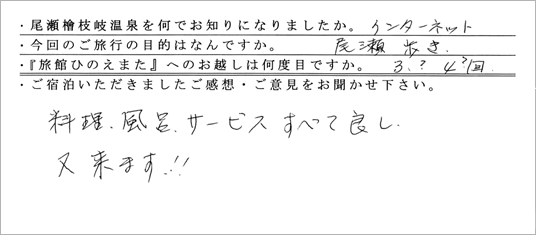 ・尾瀬檜枝岐温泉を何でお知りになりましたか。 インターネット
・今回のご旅行の目的はなんですか。 尾瀬 歩き.
・『旅館ひのえまた』へのお越しは何度目ですか。 3.? 4?回
・ご宿泊いただきましたご感想・ご意見をお聞かせ下さい。
料理、風呂、サービス すべて良し.
又 来ます!!